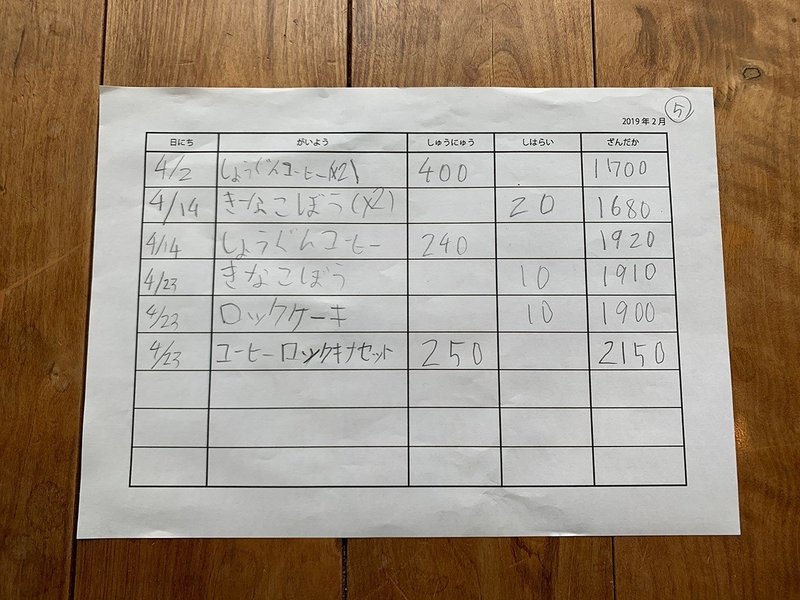 ⑤
2019年2月
日にち がいよう しゅうにゅう しはらい ざんだか
4/2 しょうぐんコーヒー(x2) 400 1700
4/14 きなこぼう(x2) 20 1680
4/14 しょうぐんコーヒー 240 1920
4/23 きなこぼう 10 1910
4/23 ロックケーキ 10 1900
4/23 コーヒーロックキナセット 250 2150